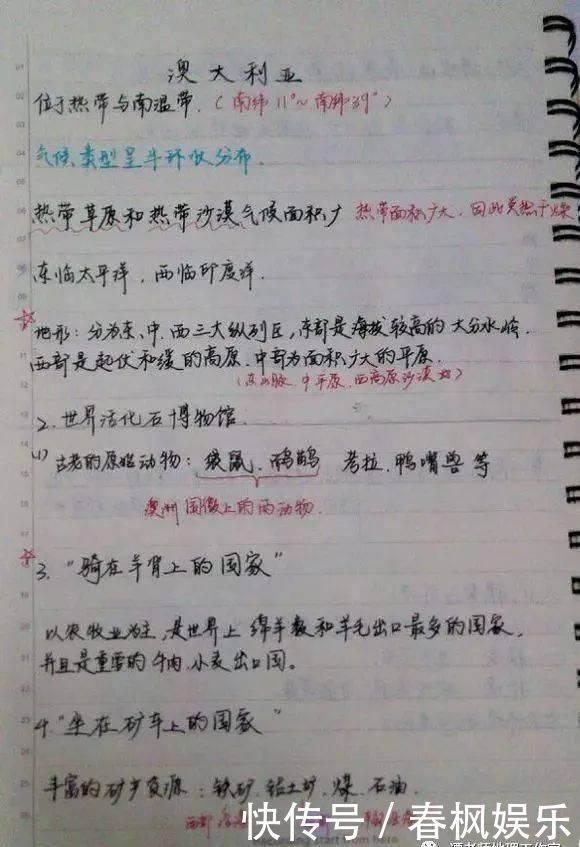 澳大利亚
位于热带与南温带.（南纬11°~南纬39°）
气候类型呈半环状分布.
热带草原和热带沙漠气候面积广 热带面积广大,因此炎热干燥
东临太平洋,西临印度洋.
☆地形:分为东、中、西三大纵列区,东部是海拔较高的大分水岭.
西部是起伏和缓的高原.中部为面积广大的平原.
(东山脉.中平原.西高原沙漠)
2.世界活化石博物馆.
(1)古老的原始动物:袋鼠.鸸鹋 考拉.鸭嘴兽等
澳洲国徽上的两动物.
☆3."骑在羊背上的国家"
以农牧业为主,是世界上绵羊数和羊毛出口最多的国家,
并且是重要的牛肉、小麦出口国。
4."坐在矿车上的国家"
丰富的矿产资源:铁矿.铝土矿.煤.石油.
西部
快传号 / 春风娱乐
start from here